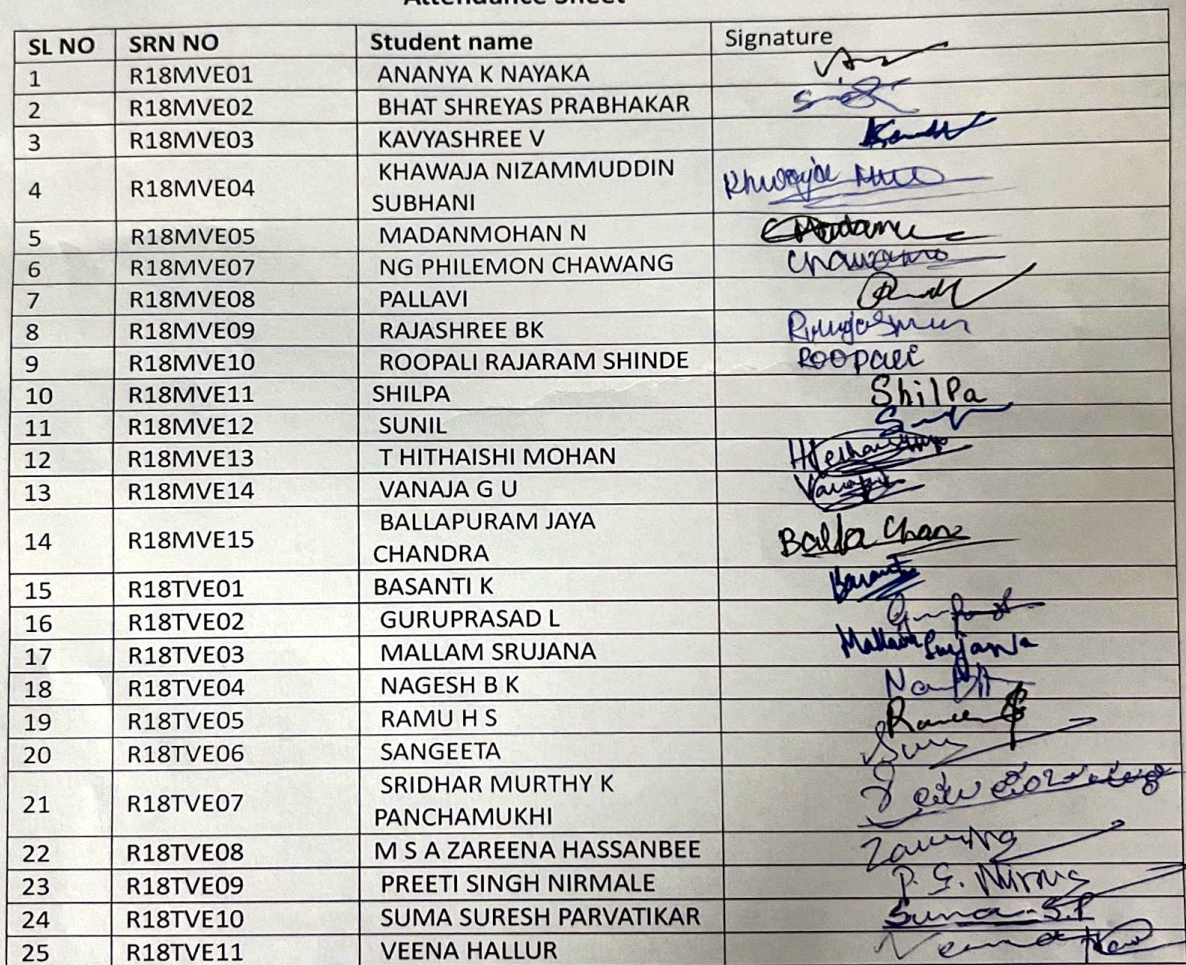 Attendance Sheet
SL NO SRN NO Student name Signature
1 R18MVE01 ANANYA K NAYAKA
2 R18MVE02 BHAT SHREYAS PRABHAKAR
3 R18MVE03 KAVYASHREE V
4 R18MVE04 KHAWAJA NIZAMMUDDIN
SUBHANI
5 R18MVE05 MADANMOHAN N
6 R18MVE07 NG PHILEMON CHAWANG
7 R18MVE08 PALLAVI
8 R18MVE09 RAJASHREE BK
9 R18MVE10 ROOPALI RAJARAM SHINDE ROOPALI
10 R18MVE11 SHILPA ShilPa
11 R18MVE12 SUNIL
12 R18MVE13 T HITHAISHI MOHAN
13 R18MVE14 VANAJA G U
14 R18MVE15 BALLAPURAM JAYA
CHANDRA
15 R18TVE01 BASANTI K
16 R18TVE02 GURUPRASAD L
17 R18TVE03 MALLAM SRUJANA Mallam Srujana
18 R18TVE04 NAGESH B K
19 R18TVE05 RAMU H S
20 R18TVE06 SANGEETA
21 R18TVE07 SRIDHAR MURTHY K
PANCHAMUKHI
22 R18TVE08 M S A ZAREENA HASSANBEE
23 R18TVE09 PREETI SINGH NIRMALE
24 R18TVE10 SUMA SURESH PARVATIKAR Suma S.P
25 R18TVE11 VEENA HALLUR